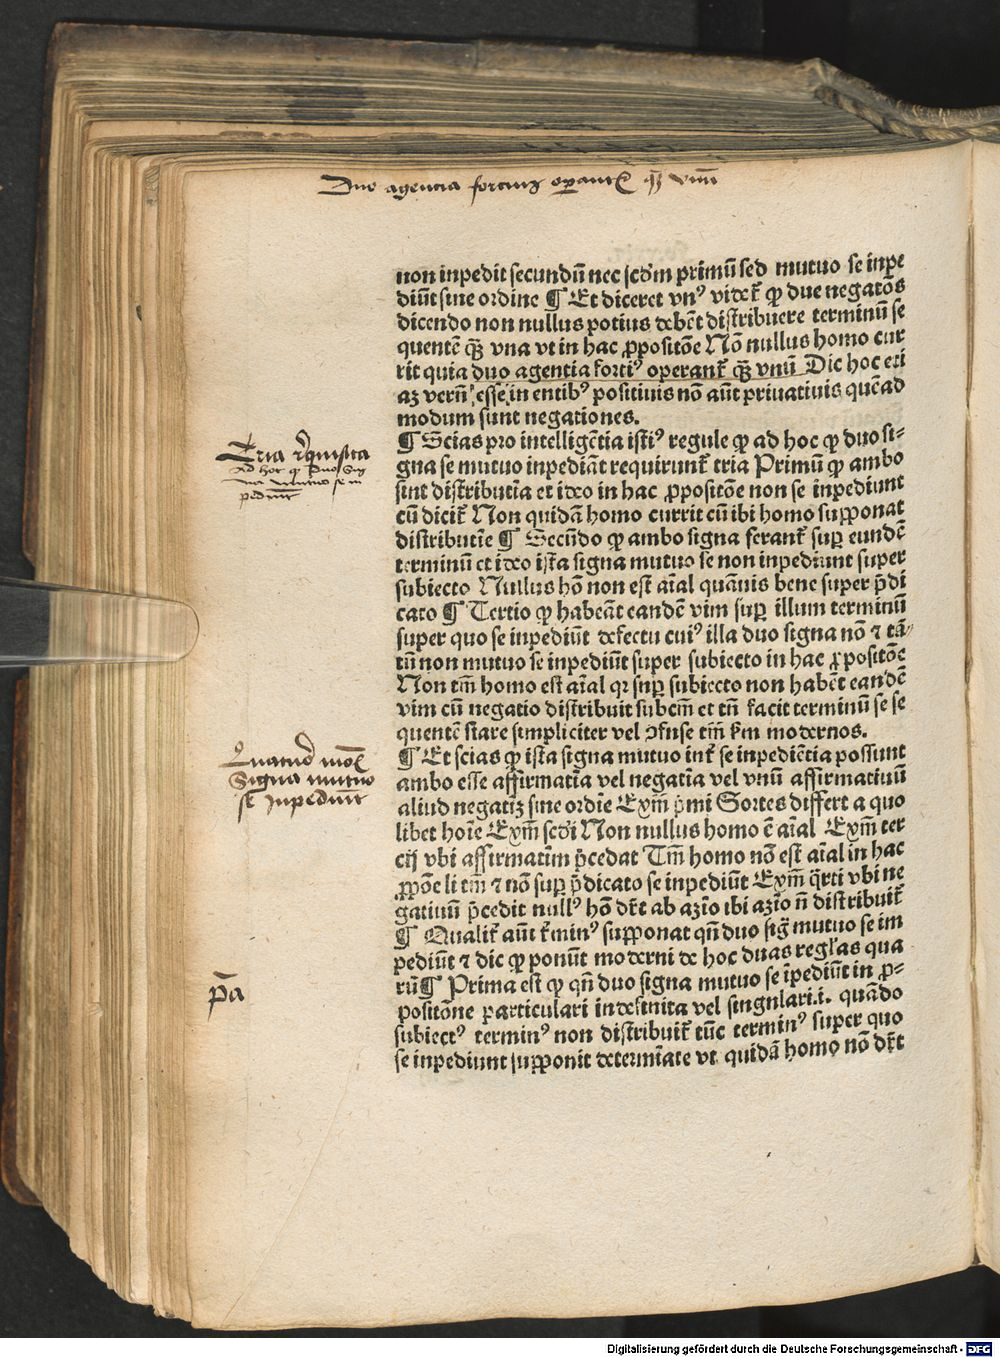 Duo agencia fortius operantur quam vnum
non inpedit secundũ nec scd̃m primũ sed mutuo se inpe
diũt sine ordine ¶ Et diceret vnꝰ videt᷑ ꝙ due negatões
dicendo non nullus potius debẽt distribuere terminũ se
quentẽ qȝ̃ vna vt in hac ꝓpositõe Nõ nullus homo cur
rit quia duo agentia fortiꝰ operant᷑ qȝ̃ vnũ Dic hoc eti
aȝ verũ esse in entibꝰ positiuis nõ aũt priuatiuis quẽad
modum sunt negationes.
Tria reqͥuisita
Ad hoc ꝙ duo sig
na mutuo se in
pediũt
¶ Scias pro intelligẽtia istiꝰ regule ꝙ ad hoc ꝙ duo si⸗
gna se mutuo inpediãt requirunt᷑ tria Primũ ꝙ ambo
sint distributĩa et ideo in hac ꝓpositõe non se inpediunt
cũ dicit᷑ Non quidã homo currit cũ ibi homo supponat
distributĩe ¶ Secũdo ꝙ ambo signa ferant᷑ suꝑ eundẽ
terminũ et ideo ista signa mutuo se non inpediunt super
subiecto Nullus hõ non est aĩal quãuis bene super p̃di
cato ¶ Tertio ꝙ habeãt eandẽ vim suꝑ illum terminũ
super quo se inpediũt defectu cuiꝰ illa duo signa nõ ⁊ tã⸗
tũ non mutuo se inpediũt super subiecto in hac ꝓpositõe
Non tm̃ homo est aĩal qꝛ suꝑ subiecto non habẽt eandẽ
vim cũ negatio distribuit subcm̃ et tñ facit terminũ se se
quentẽ stare simpliciter vel ↄfuse tm̃ ẜm modernos.
Quatuor modis
Signa mutuo
se Inpediũt
¶ Et scias ꝙ ista signa mutuo int᷑ se inpediẽtia possunt
ambo esse affirmatĩa vel negatĩa vel vnũ affirmatiuũ
aliud negatiȝ sine ordĩe Exm̃ p̃mi Sortes differt a quo
libet hoĩe Exm̃ scd̃i Non nullus homo ẽ aĩal Exm̃ ter
cij vbi affirmatĩm p̃cedat Tm̃ homo nõ est aĩal in hac
ꝓpõe li tm̃ ⁊ nõ suꝑ p̃dicato se inpediũt Exm̃ q̃rti vbi ne
gatiuũ p̃cedit nullꝰ hõ dr̃t ab aȝĩo ibi aȝĩo ñ distribuit᷑
¶ Qualit᷑ aũt t᷑minꝰ supponat qñ duo sig̃ mutuo se im
pediũt ⁊ dic ꝙ ponũt moderni de hoc duas regłas qua
pa
rũ ¶ Prima est ꝙ qñ duo signa mutuo se ĩpediũt in ꝓ⸗
positõne particulari indefinita vel singulari.i. quãdo
subiectꝰ terminꝰ non distribuit᷑ tũc terminꝰ super quo
se inpediunt supponit determĩate vt quidã homo nõ dr̃t
Digitalisierung gefördert durch die Deutsche Forschungsgemeinschaft - DFG